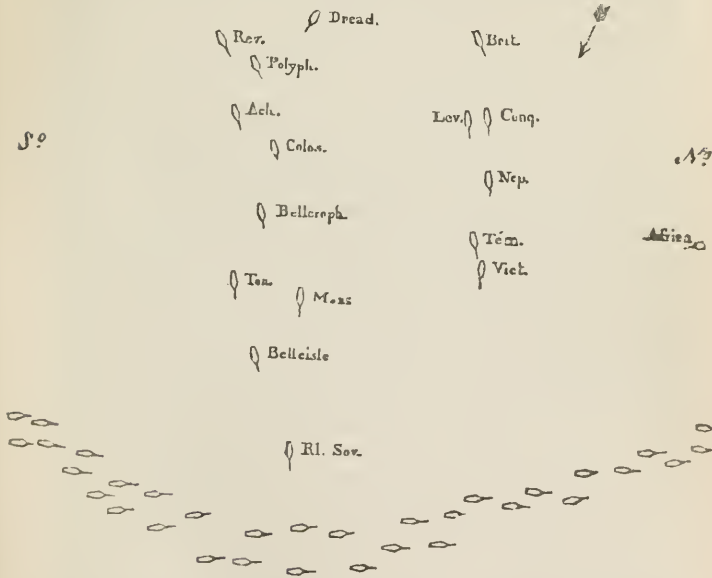 Dread.
Rev.
Brit.
Polyph.
Ach.
Lev.
Conq.
Colos.
Nep.
Belleroph.
Tém.
Africa
Vict.
Ton.
Mars
Belleisle
Rl. Sov.